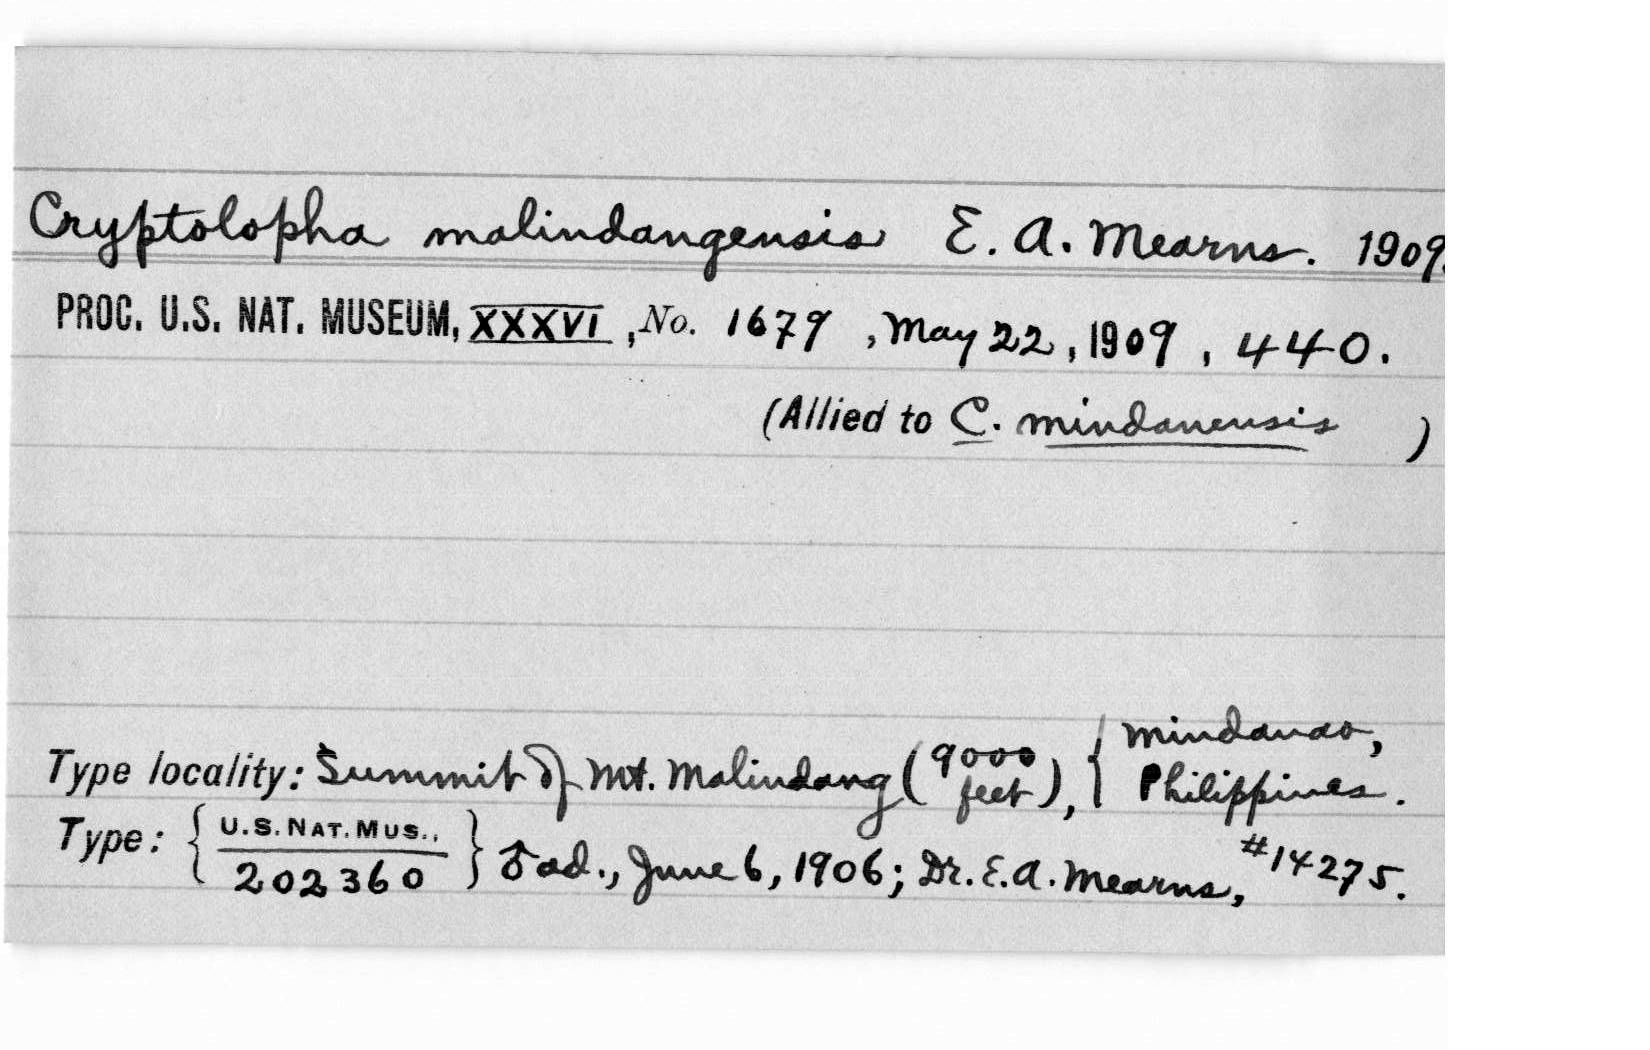 Cryptolopha malindangensis E. A. Mearns. 1909.
PROC. U.S. NAT. MUSEUM, XXXVI, No. 1679, May 22, 1909, 440.
(Allied to C. mindanensis )
Type locality: Summit of Mt. Malindang (9000 feet), { Mindanao, Philippines.
Type: { U.S. NAT. MUS., 202360 } ♂ ad., June 6, 1906; Dr. E. A. Mearns, #14275.